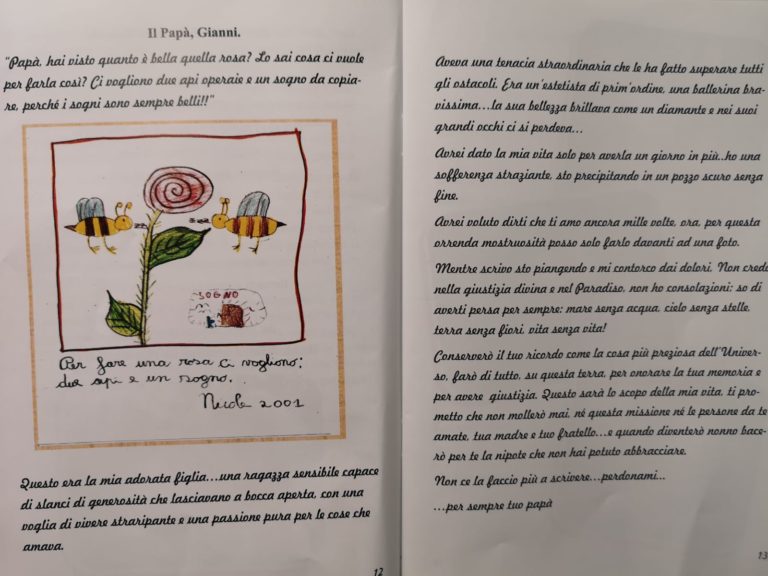 Il Papà, Gianni.
"Papà, hai visto quanto è bella quella rosa? Lo sai cosa ci vuole
per farla così? Ci vogliono due api operaie e un sogno da copia-
re, perché i sogni sono sempre belli!!"
SOGNO
Per fare una rosa ci vogliono:
due api e un sogno.
Nicole 2001
Questo era la mia adorata figlia...una ragazza sensibile capace
di slanci di generosità che lasciavano a bocca aperta, con una
voglia di vivere straripante e una passione pura per le cose che
amava.
12
Aveva una tenacia straordinaria che le ha fatto superare tutti
gli ostacoli. Era un'estetista di prim'ordine, una ballerina bra-
vissima...la sua bellezza brillava come un diamante e nei suoi
grandi occhi ci si perdeva...
Avrei dato la mia vita solo per averla un giorno in più..ho una
sofferenza straziante, sto precipitando in un pozzo scuro senza
fine.
Avrei voluto dirti che ti amo ancora mille volte, ora, per questa
orrenda mostruosità posso solo farlo davanti ad una foto.
Mentre scrivo sto piangendo e mi contorco dai dolori. Non credo
nella giustizia divina e nel Paradiso, non ho consolazioni: so di
averti persa per sempre: mare senza acqua, cielo senza stelle,
terra senza fiori, vita senza vita!
Conserverò il tuo ricordo come la cosa più preziosa dell'Univer-
so, farò di tutto, su questa terra, per onorare la tua memoria e
per avere giustizia. Questo sarà lo scopo della mia vita, ti pro-
metto che non mollerò mai, né questa missione né le persone da te
amate, tua madre e tuo fratello...e quando diventerò nonno bace-
rò per te la nipote che non hai potuto abbracciare.
Non ce la faccio più a scrivere...perdonami...
...per sempre tuo papà
13